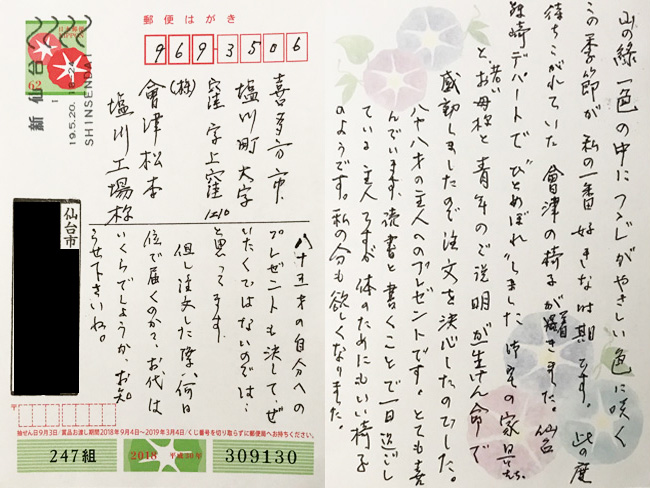 郵便はがき
9693506
新仙台
19.5.20.
SHINSENDAI
喜多方市
塩川町大字
窪字上窪
1210
(株)
會津松本
塩川工場様
仙台市
八十五才の自分への
プレゼントも決して・ぜ
いたくではないのでは…
と思ってます
但し注文した際、何日
位で届くのか?お代は
いくらでしょうか、お知
らせ下さいね。
抽せん日9月3日/賞品お渡し期間2018年9月4日~2019年3月4日/くじ番号を切り取らずに郵便局へお持ちください。
247組
2018
平成30年
309130
山の緑一色の中にフジがやさしい色に咲く
この季節が私の一番好きな時期です。此の度
待ちこがれていた會津の椅子が着きました。仙台
藤崎デパートで"ひとめぼれ"しました
若い
と、お母様と青年のご説明が一生けん命で
感動しましたので注文を決心したのでした。
八十八才の主人へのプレゼントです。とても喜
んでいます、読書と書くことで一日過ごし
ている主人ですが体のためにもいい椅子
のようです。私の分も欲しくなりました。